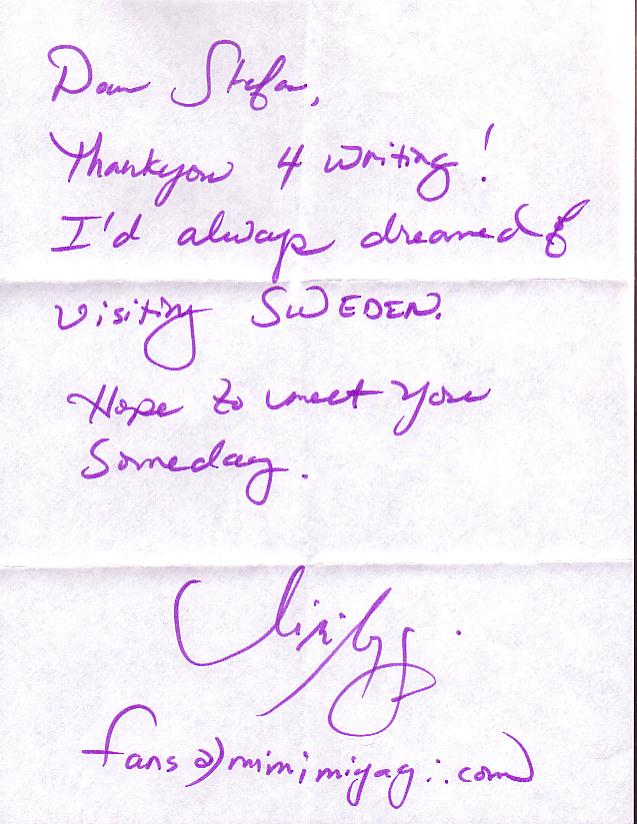 Dear Stefan,
Thankyou 4 writing!
I'd always dreamed of
visiting SWEDEN.
Hope to meet you
Someday.
fans@mimimiyagi.com